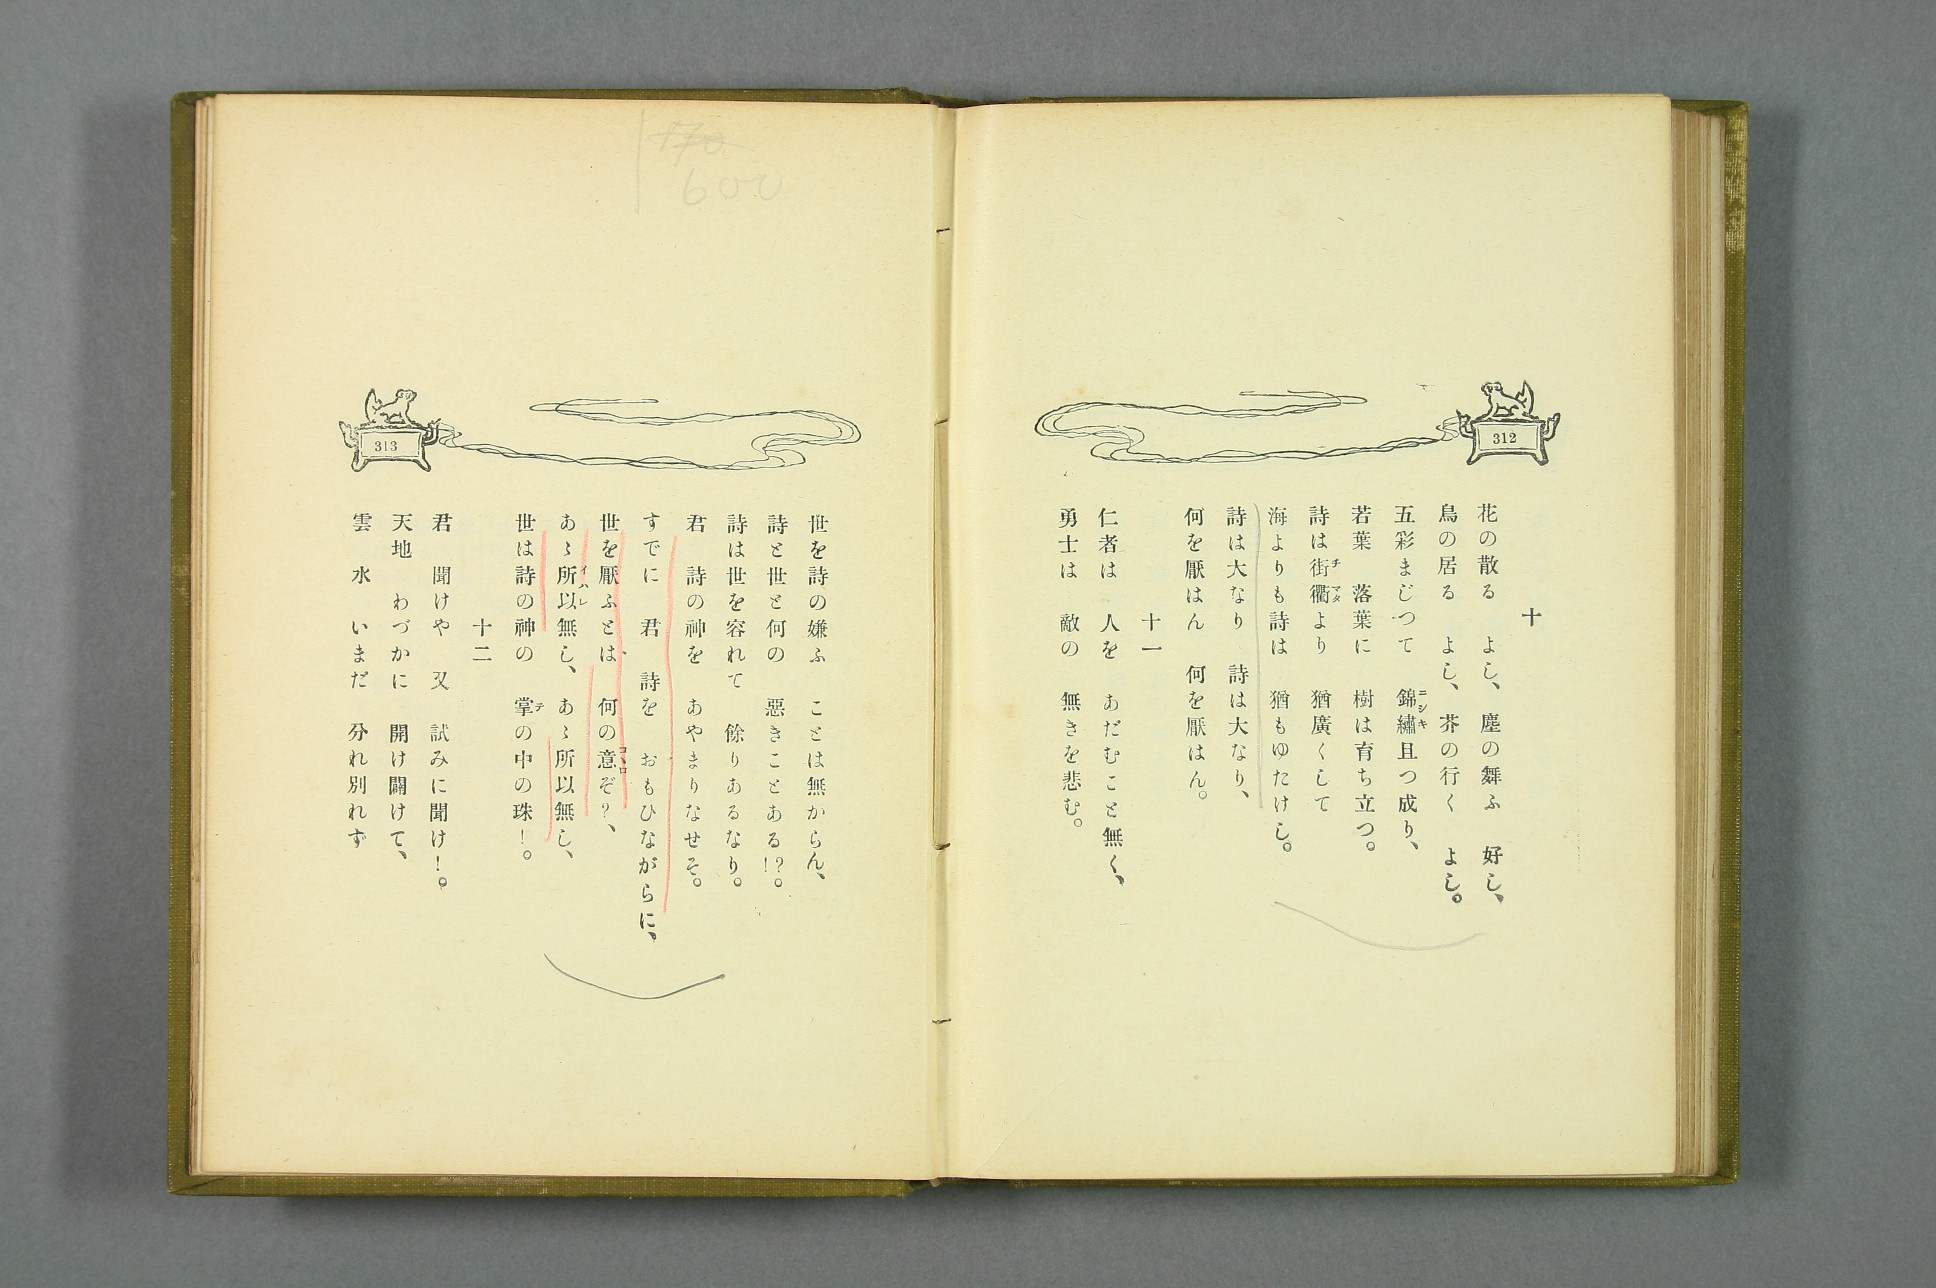 312
十
花の散る　よし、塵の舞ふ　好し、
鳥の居る　よし、芥の行く　よし。
五彩まじつて　錦繡且つ成り、
若葉　落葉に　樹は育ち立つ。
詩は街衢より　猶廣くして
海よりも詩は　猶もゆたけし。
詩は大なり　詩は大なり、
何を厭はん　何を厭はん。
十一
仁者は　人を　あだむこと無く、
勇士は　敵の　無きを悲む。
313
世を詩の嫌ふ　ことは無からん、
詩と世と何の　惡きことある!?。
詩は世を容れて　餘りあるなり。
君　詩の神を　あやまりなせそ。
すでに　君　詩を　おもひながらに、
世を厭ふとは　何の意ぞ?、
あゝ所以無し、あゝ所以無し、
世は詩の神の　掌の中の珠!。
十二
君　聞けや　又　試みに聞け!。
天地　わづかに　開け闢けて、
雲　水　いまだ　分れ別れず
170
600